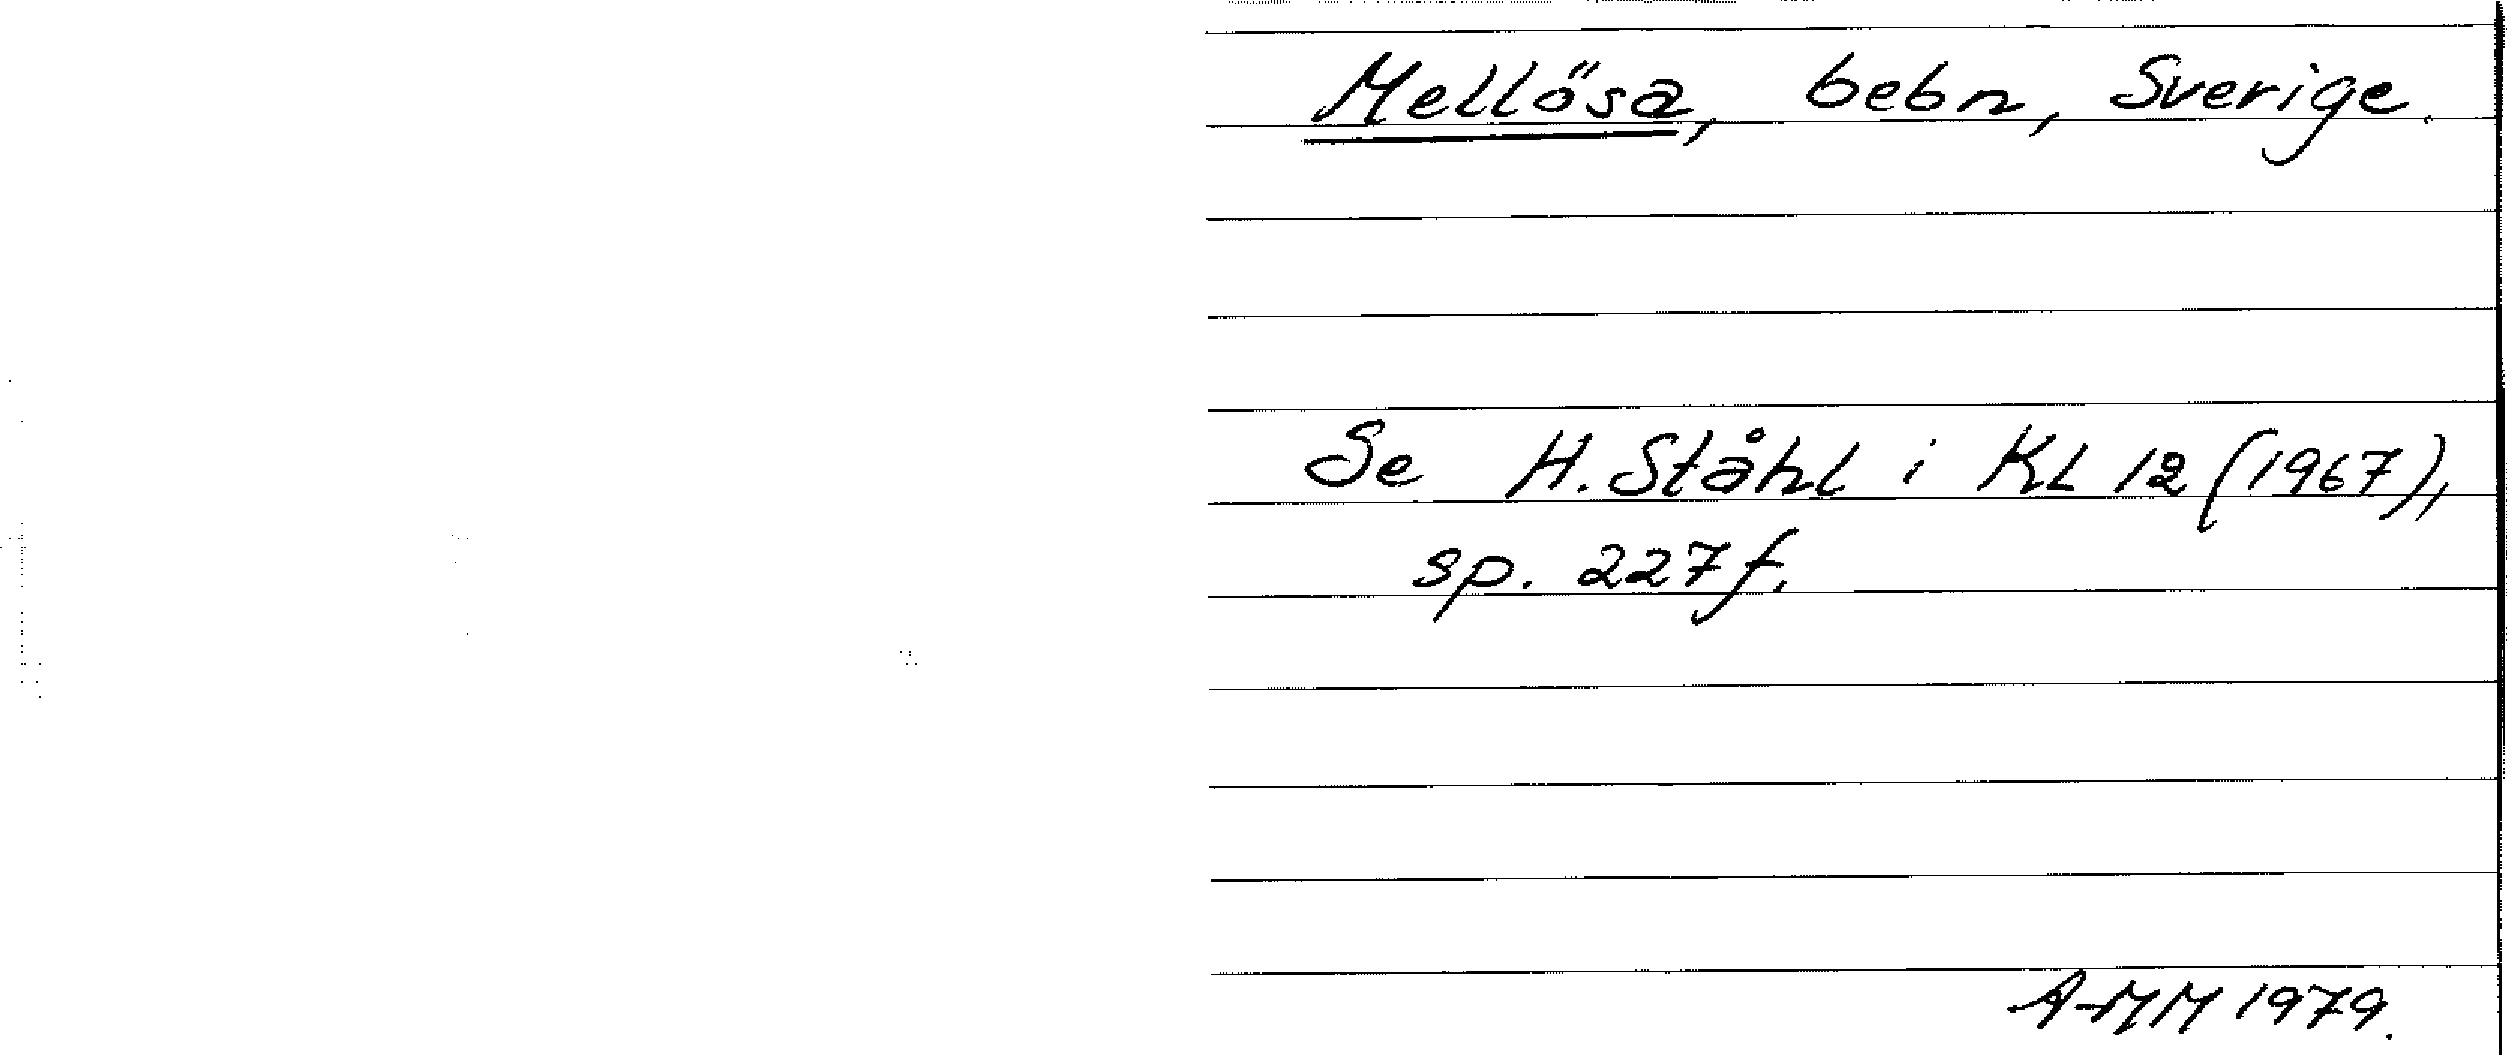 Mellösa, bebn, Sverige.
Se H. Ståhl i KL 12 (1967),
sp. 227 f.
A-MM 1979.